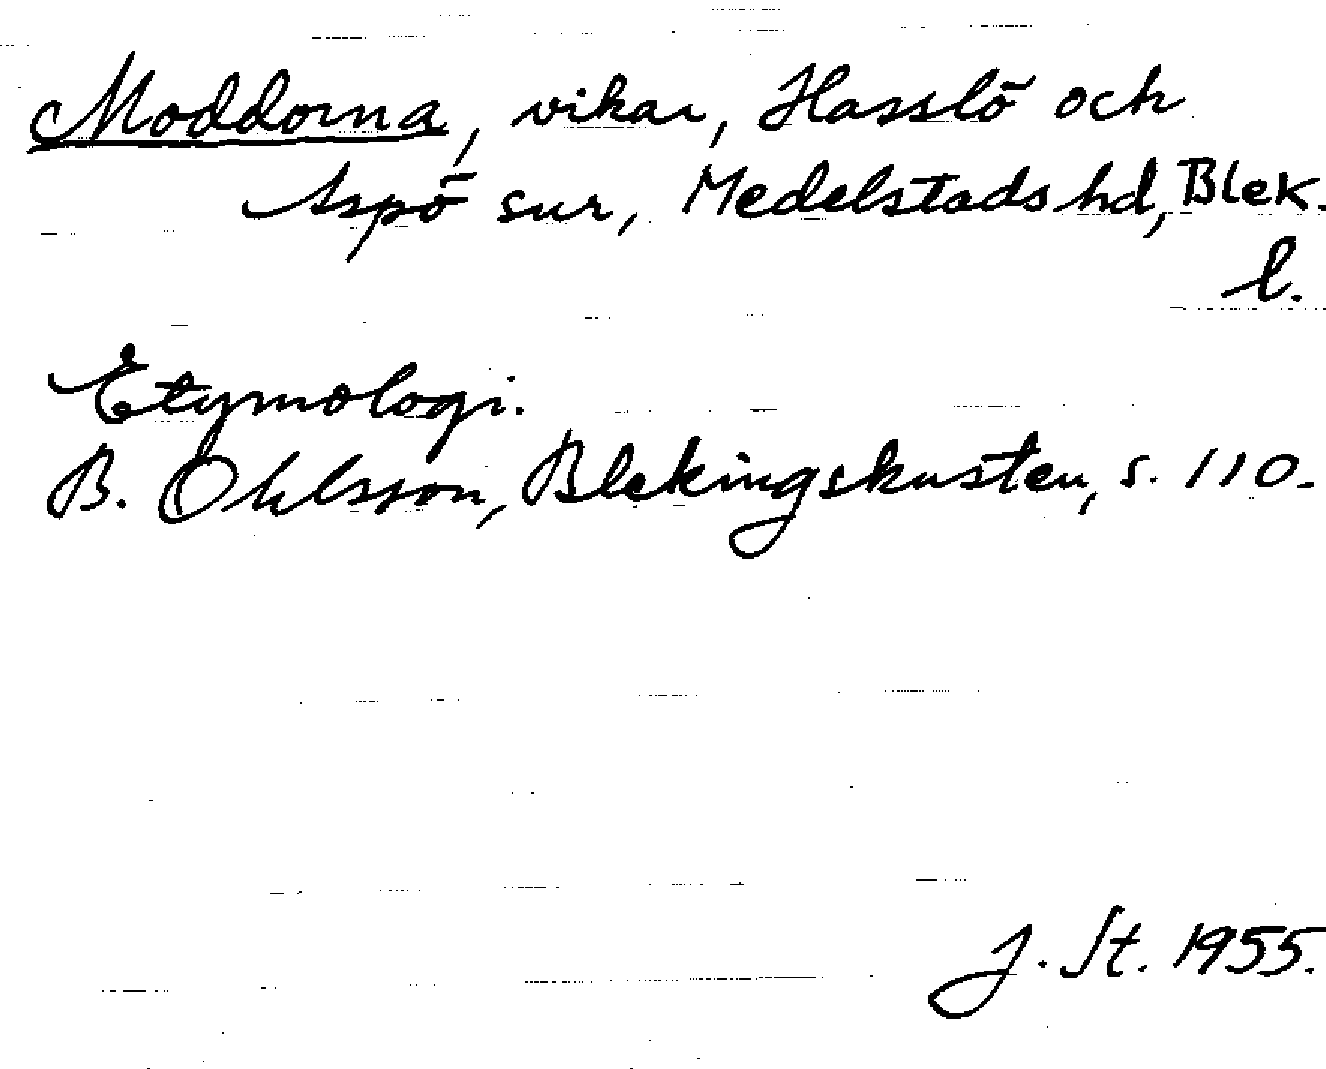 Moddorna, vikar, Hasslö och
Aspö snr, Medelstads hd, Blek.
l.
Etymologi.
B. Ohlsson, Blekingskusten, s. 110.
J. St. 1955.